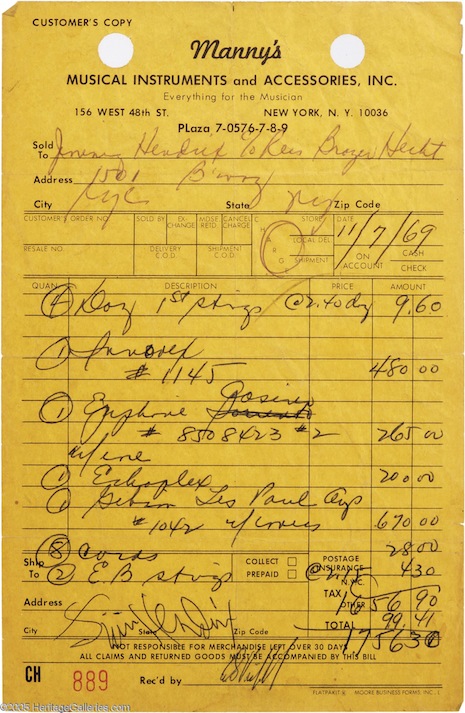 CUSTOMER'S COPY
Manny's
MUSICAL INSTRUMENTS and ACCESSORIES, INC.
Everything for the Musician
156 WEST 48th ST. NEW YORK, N. Y. 10036
PLaza 7-0576-7-8-9
Sold To Jimmy Hendrix % Hecht
Address 1501 B'way
City NYC State NY Zip Code
CUSTOMER'S ORDER NO. SOLD BY EX-CHANGE MDSE. RETD. CANCEL CHARGE CHARGE STORE DATE 11/7/69
LOCAL DEL. CASH
RESALE NO. DELIVERY C.O.D. SHIPMENT C.O.D. SHIPMENT ON ACCOUNT CHECK
QUAN. DESCRIPTION PRICE AMOUNT
4 Doz 1st Strings @ 2.40 dz 9.60
1
# 1145 480 00
1 Epiphone
# 8508423 #2 265 00
1 Echoplex 200.00
1 Gibson Les Paul
# 1042 w/ covers 670 00
8 Cords 28 00
Ship To 2 E.B Strings COLLECT PREPAID POSTAGE INSURANCE 4 30
Address N.Y.C. TAX OTHER 1656 90
99.41
City State Zip Code TOTAL 1756 31
Jimi Hendrix
NOT RESPONSIBLE FOR MERCHANDISE LEFT OVER 30 DAYS
ALL CLAIMS AND RETURNED GOODS MUST BE ACCOMPANIED BY THIS BILL
CH 889 Rec'd by
FLATPAKIT ® MOORE BUSINESS FORMS, INC.
©2005 HeritageGalleries.com